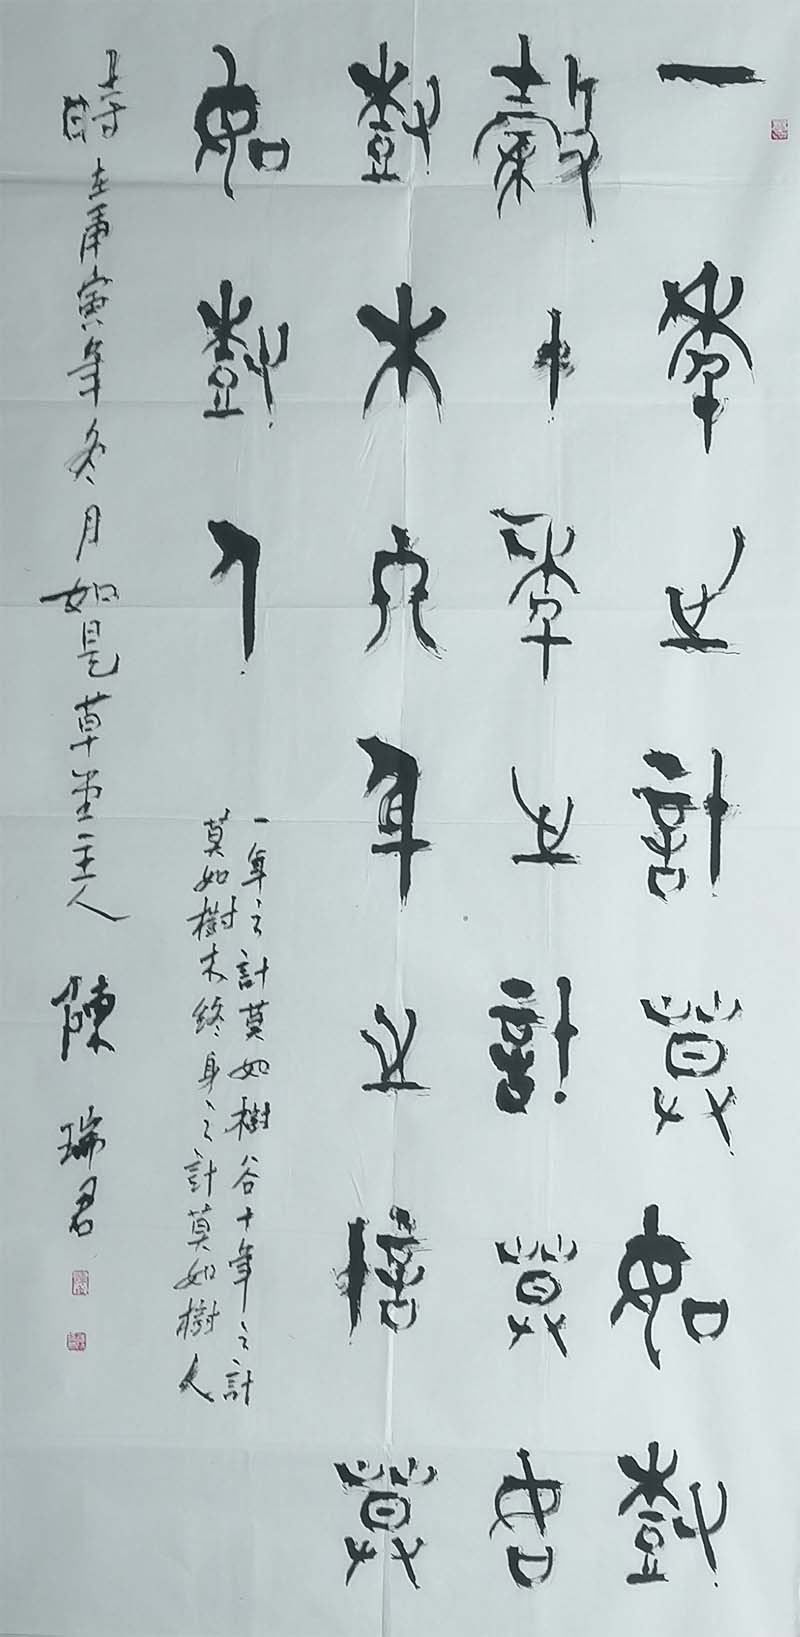 一年之計莫如樹
穀十年之計莫如
樹木終身之計莫
如樹人
一年之計莫如樹谷十年之計
莫如樹木終身之計莫如樹人
時在庚寅年冬月如是草堂主人 陳瑞君